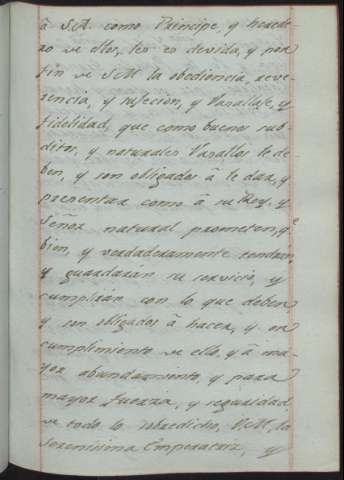 à S.A. como Principe, y herede-
ro de ellos, les es devida, y por
fin de S.M. la obediencia, reve-
rencia, y sujecion, y Vasallaje, y
fidelidad, que como buenos sub-
ditos, y naturales Vasallos le de-
ben, y son obligados à le dar, y
presentar como à su Rey, y
Señor natural prometen, qe
bien, y verdaderamente tendrán
y guardarán su servicio, y
cumplirán con lo que deben,
y son obligados à hacer, y en
cumplimiento de ello, y à ma-
yor abundamiento, y para
mayor fuerza, y seguridad
de todo lo sobredicho, V.M., la
Serenisima Emperatriz, y